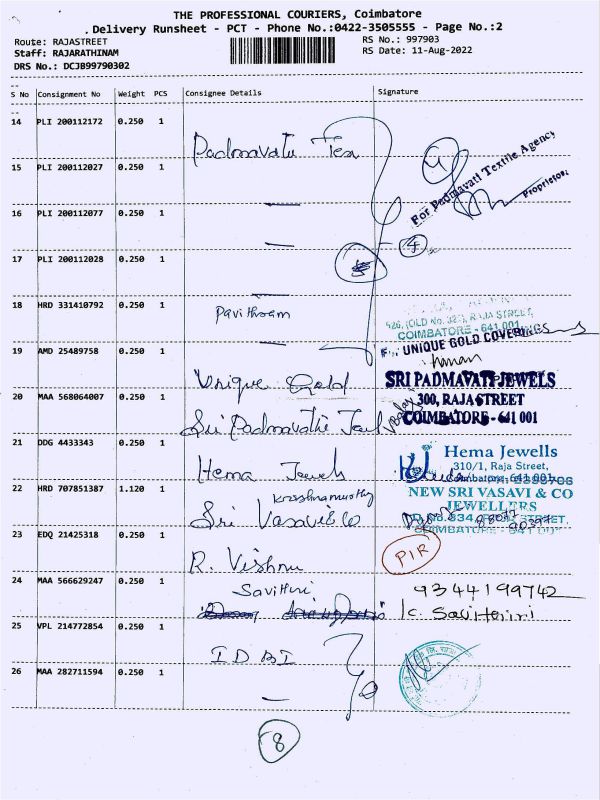 THE PROFESSIONAL COURIERS, Coimbatore
Delivery Runsheet - PCT - Phone No.:0422-3505555 - Page No.:2
Route: RAJASTREET
RS No.: 997903
Staff: RAJARATHINAM
RS Date: 11-Aug-2022
DRS No.: DCJB99790302
S No Consignment No Weight PCS Consignee Details Signature
14 PLI 200112172 0.250 1 Padmavati Tex
For Padmavati Textile Agency
Proprietor.
15 PLI 200112027 0.250 1 —
16 PLI 200112077 0.250 1 —
4
17 PLI 200112028 0.250 1 —
18 HRD 331410792 0.250 1 Pavithram
RAJA STREET,
COIMBATORE - 641 001
19 AMD 25489758 0.250 1 Unique Gold
UNIQUE GOLD COVERINGS
20 MAA 568064007 0.250 1 Sri Padmavathi
SRI PADMAVATI JEWELS
300, RAJA STREET
COIMBATORE - 641 001
21 DDG 4433343 0.250 1 Hema Jewels
Hema Jewells
310/1, Raja Street,
22 HRD 707851387 1.120 1 Krishnamurthy
Sri Vasavi & Co
NEW SRI VASAVI & CO
JEWELLERS
23 EDQ 21425318 0.250 1 R. Vishnu
PIR
24 MAA 566629247 0.250 1 Savithri
9344199742
K. Savithiri
25 VPL 214772854 0.250 1 IDBI
26 MAA 282711594 0.250 1 —
8